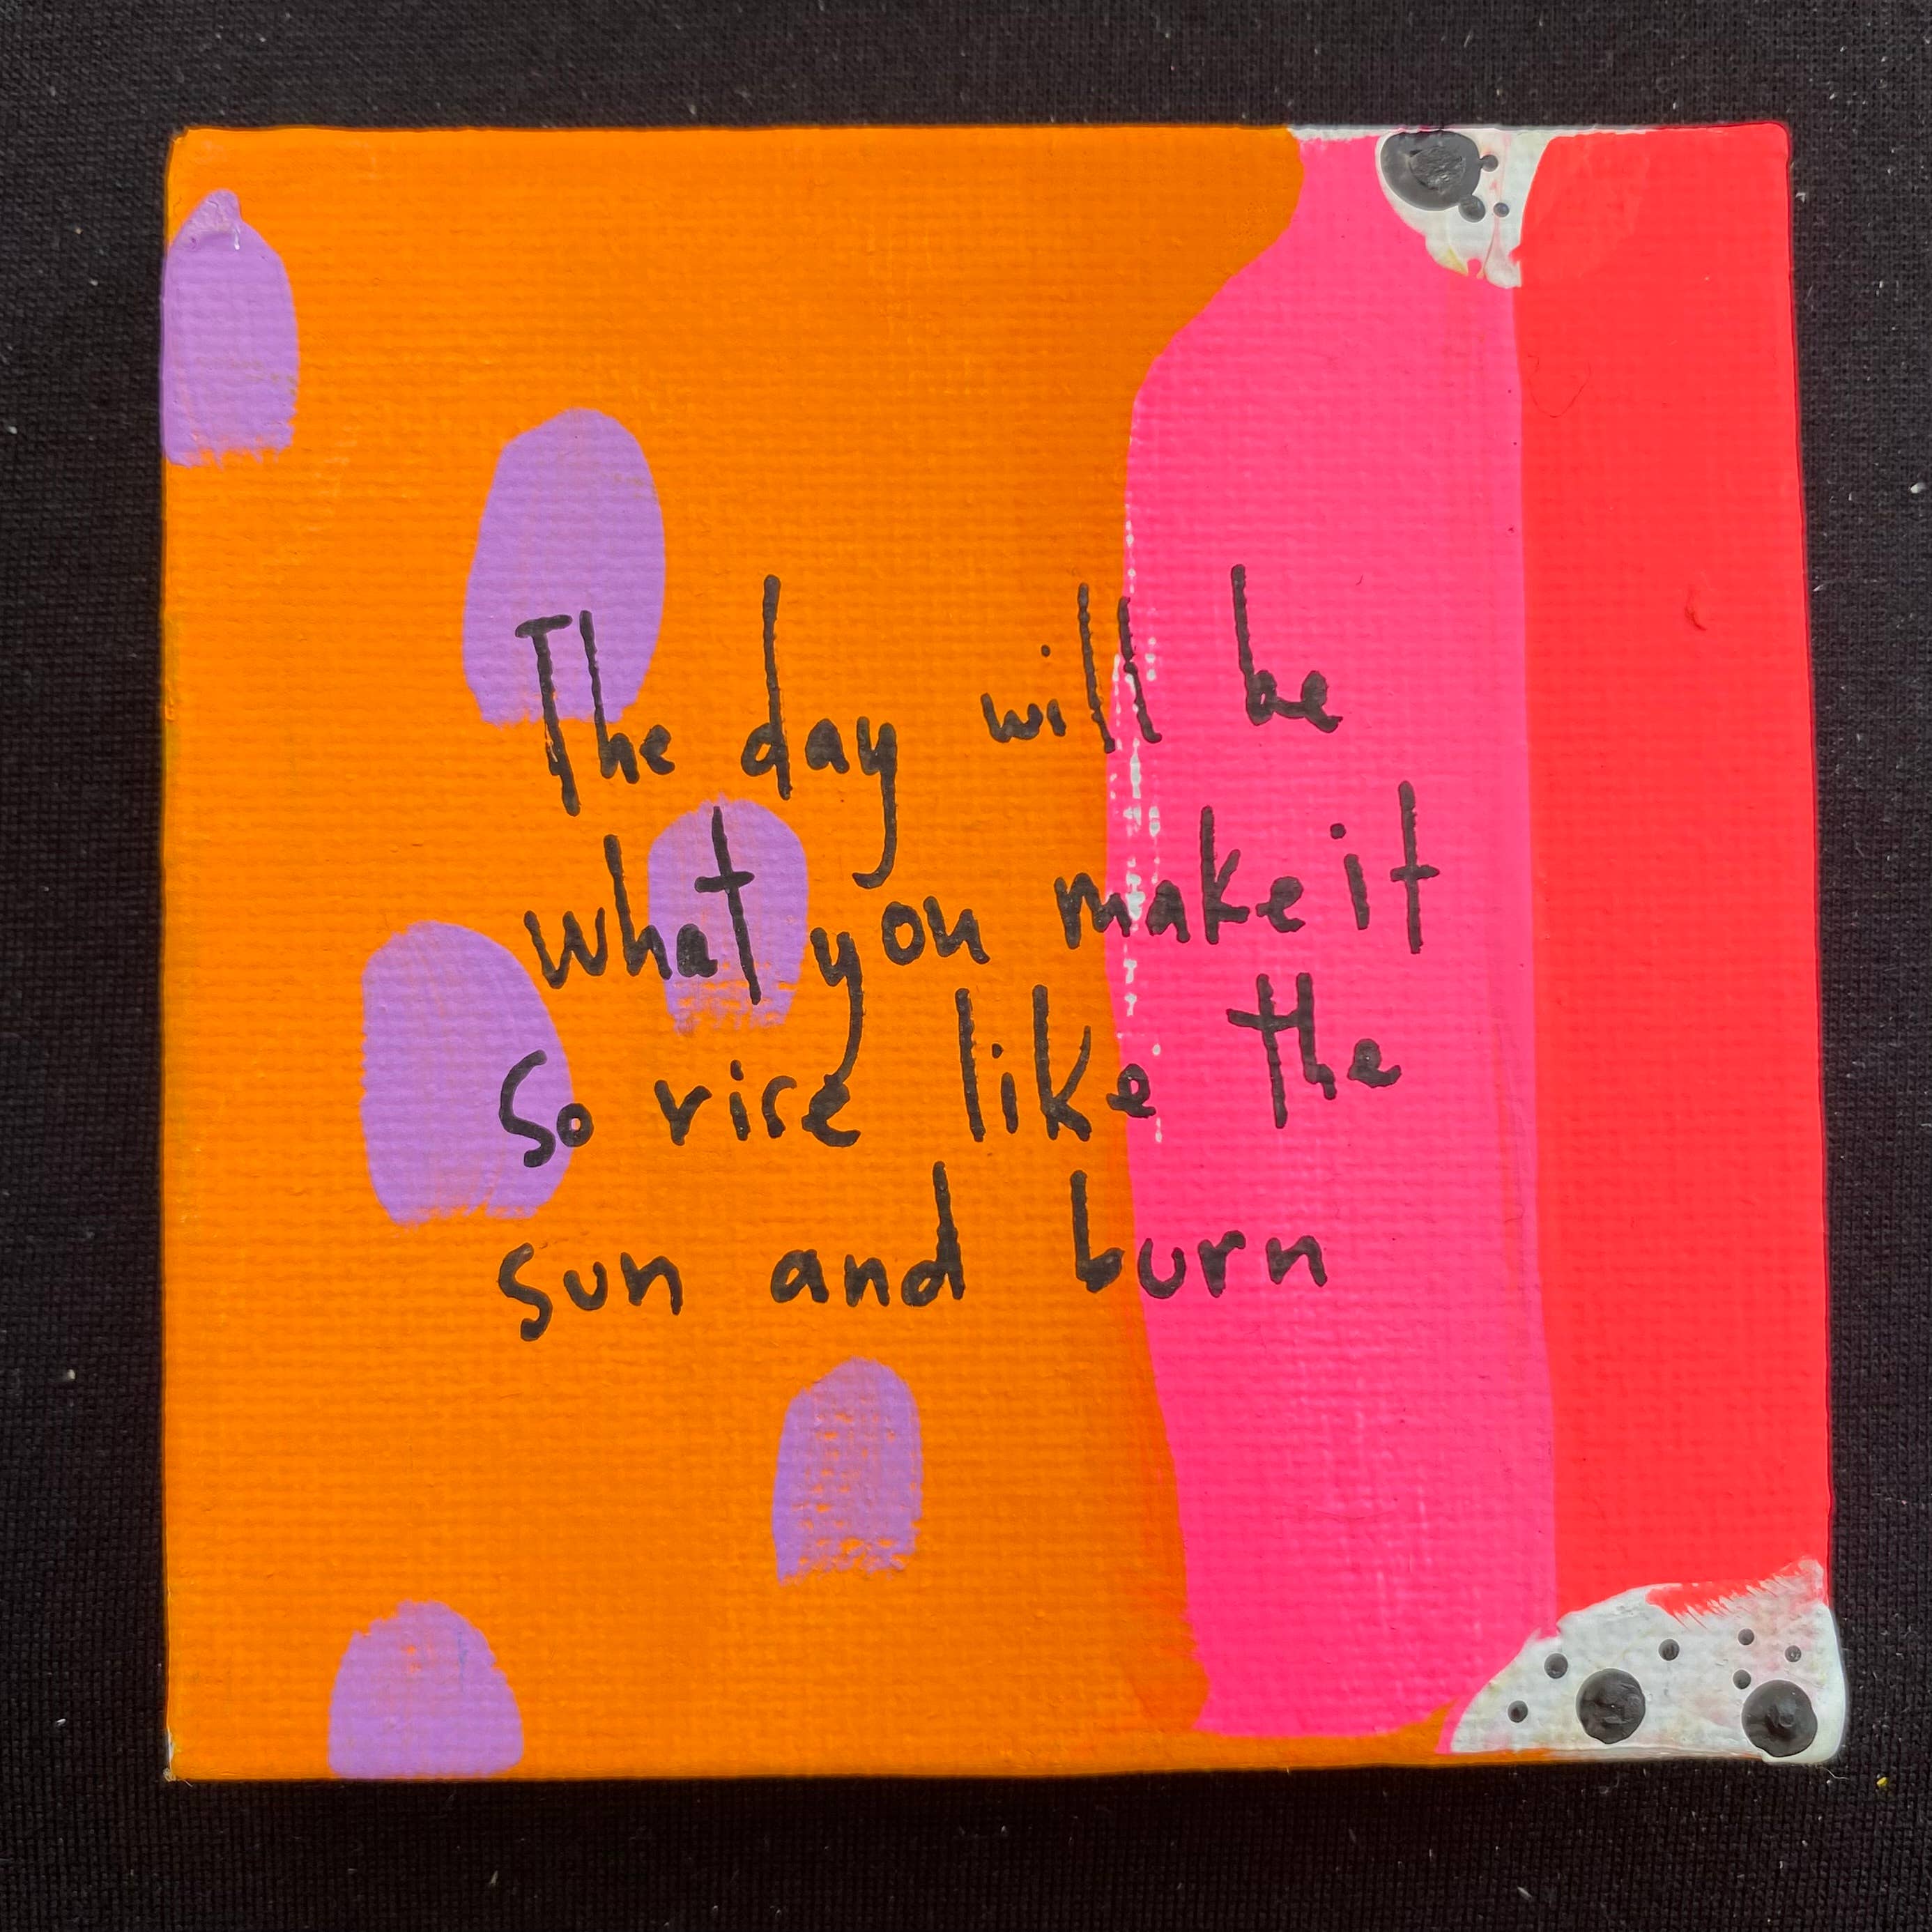 The day will be
what you make it
So rise like the
sun and burn